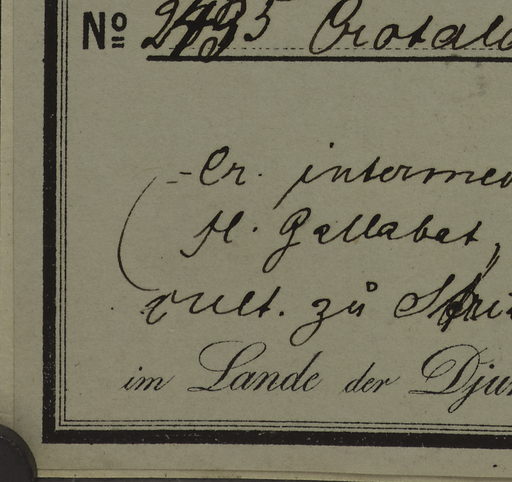 No 2435 Crotala
- Cr. intermed
H. Gallabat,
cult. zu
im Lande der Djur